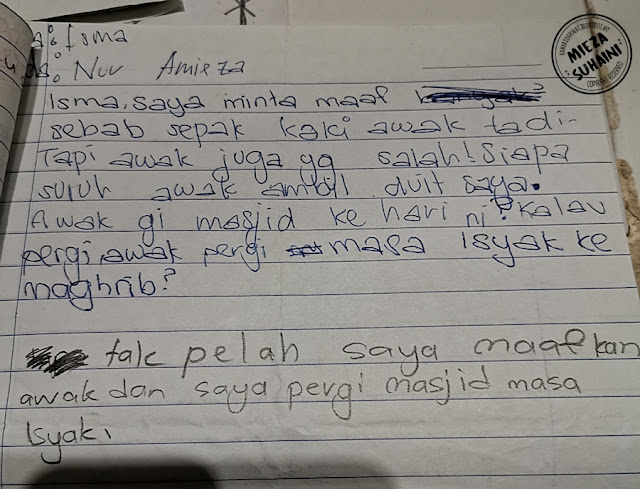 Isma
Nur Amieza
Isma, saya minta maaf
sebab sepak kaki awak tadi-
Tapi awak juga yg salah! Siapa
suruh awak ambil duit saya.
Awak gi masjid ke hari ni? Kalau
pergi awak pergi masa Isyak ke
maghrib?
tak pelah saya maafkan
awak dan saya pergi masjid masa
Isyak.
MIEZA
SUHAINI